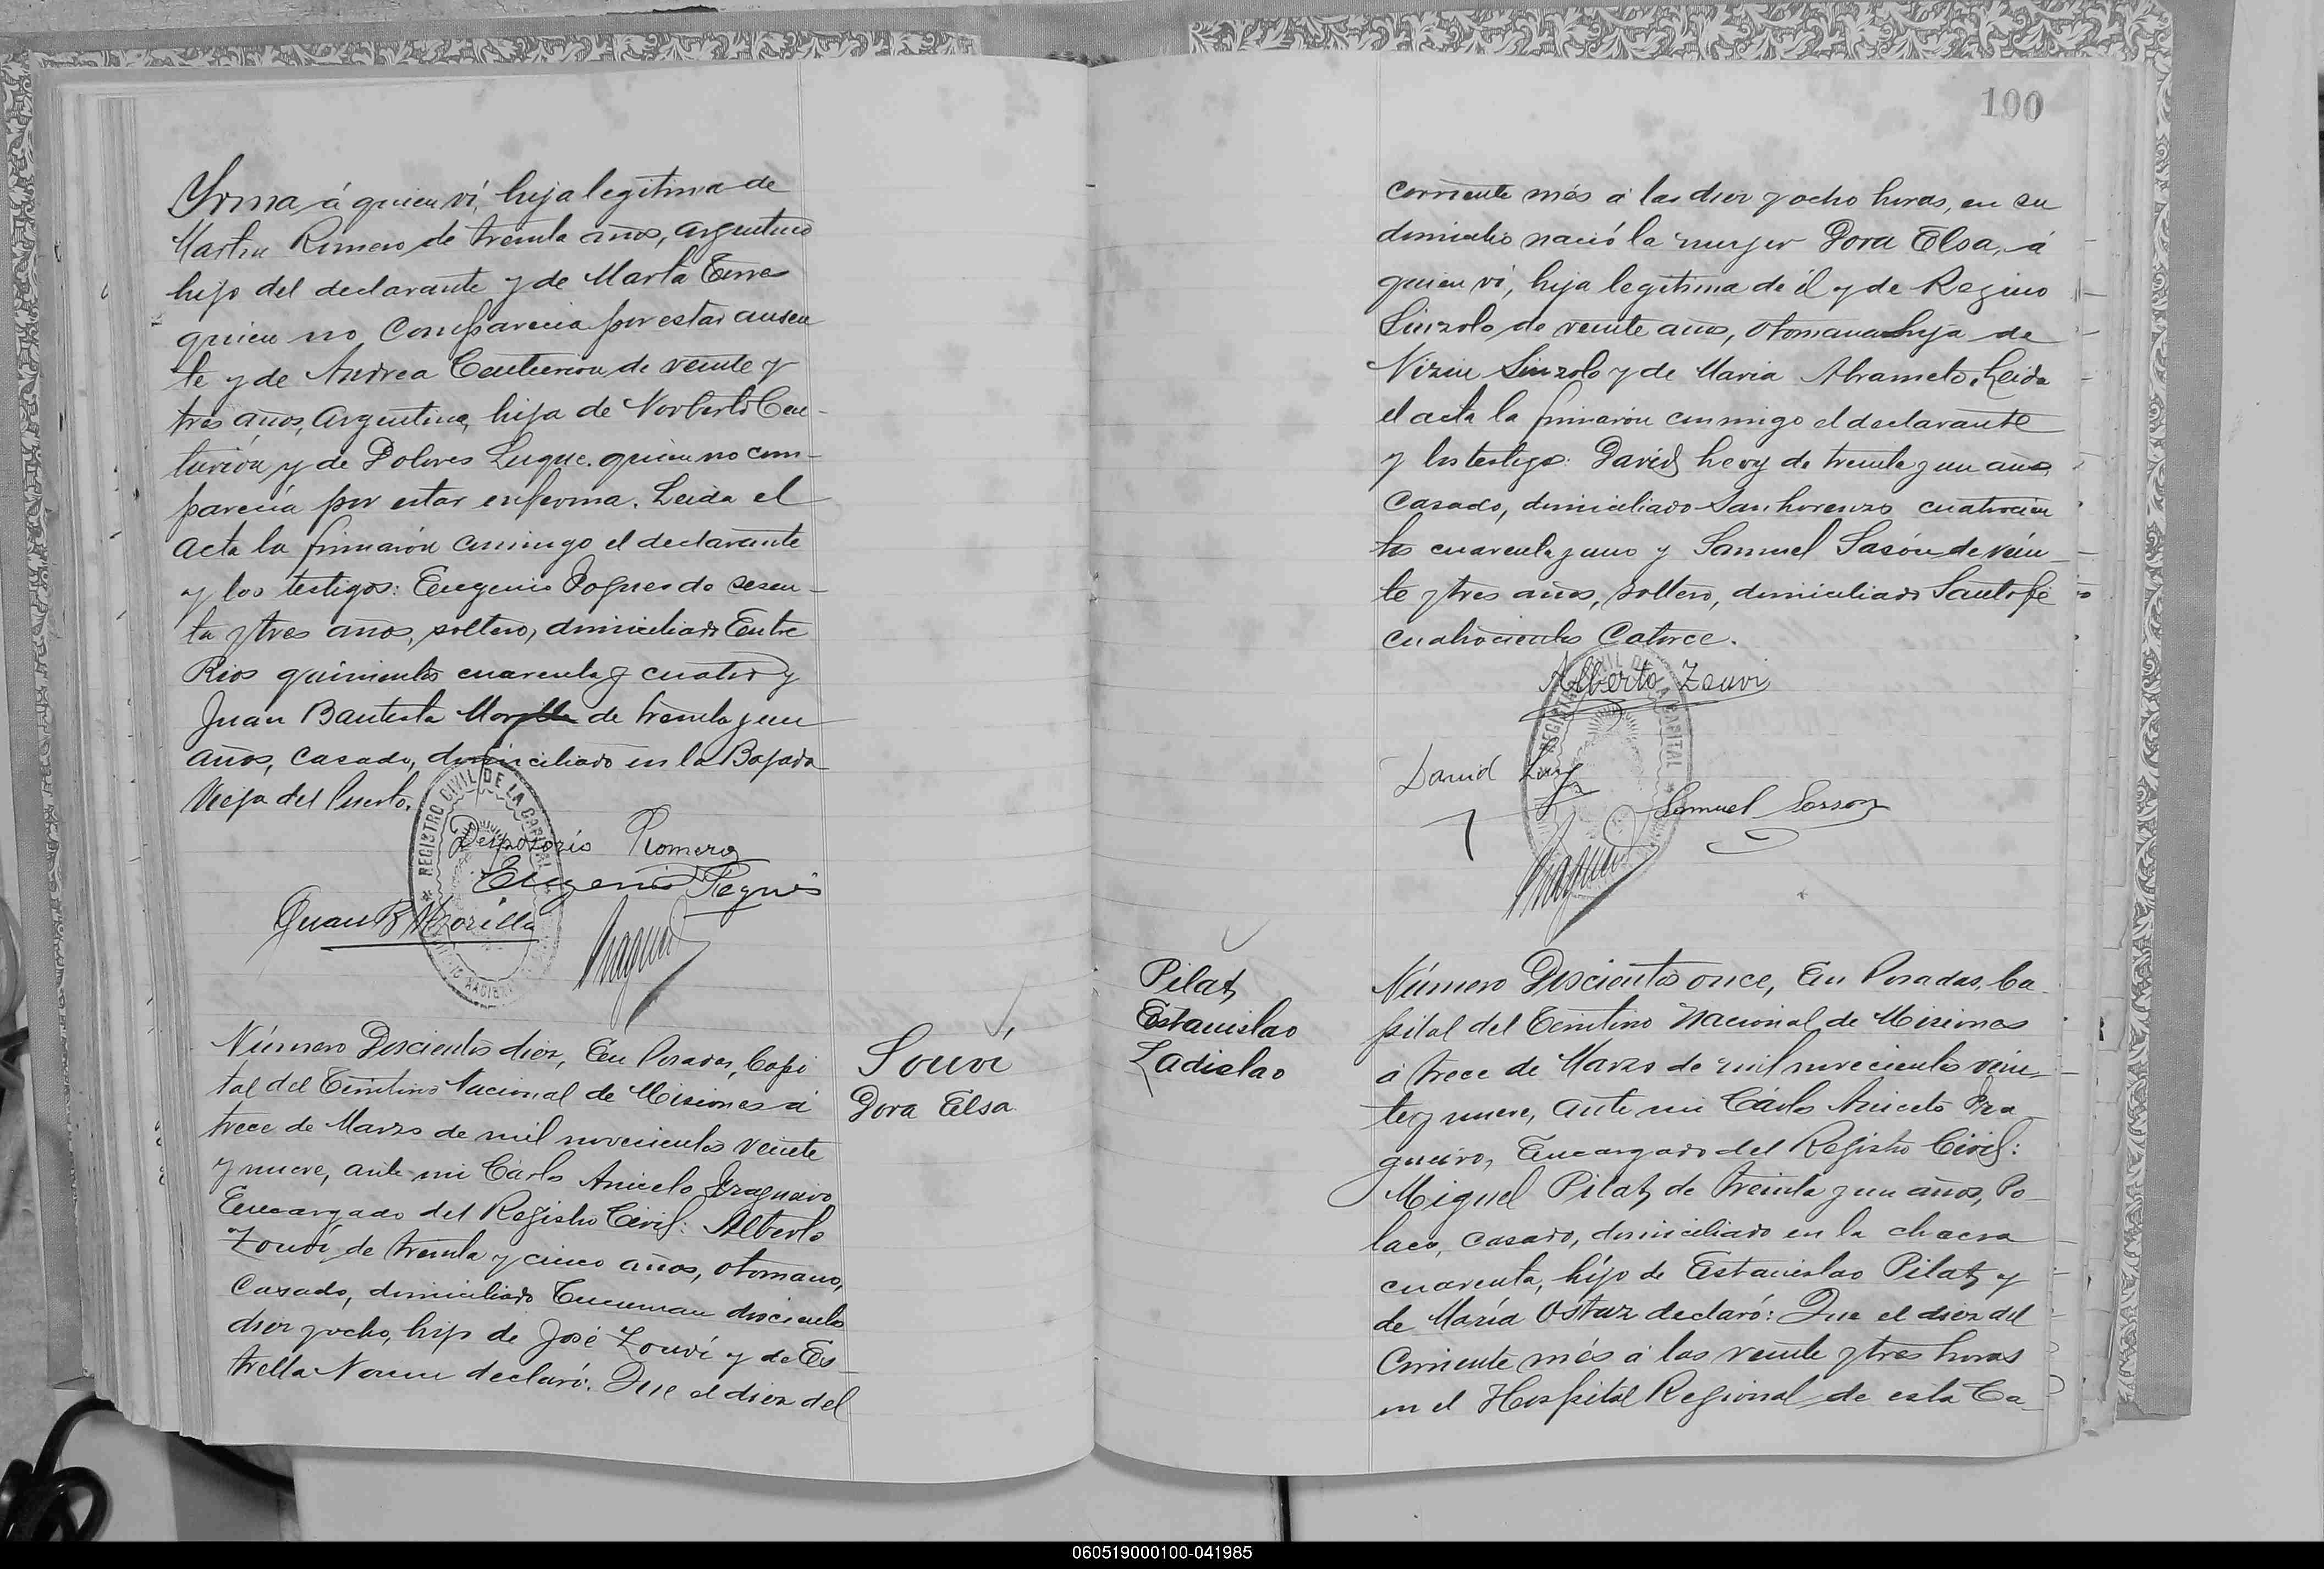 Yrma á quien ví, hija legítima de
Martin Romero de treinta años, argentino
hijo del declarante y de Marta Torres
quien no comparecia por estar ausen
te y de Andrea Centurion de veinte y
tres años, argentina, hija de Norberto Cen-
turión y de Dolores Luque. quien no com-
parecía por estar enferma. Leida el
acta la firmaron conmigo el declarante
y los testigos: Eugenio de sesen-
ta y tres años, soltero, domiciliado Entre
Rios quinientos cuarenta y cuatro y
Juan Bautista Morilla de treinta y un
años, casado, domiciliado en la Bajada
Vieja del Puerto.
REGISTRO CIVIL DE LA CAPITAL
Desposorio Romero
Eugenio
Juan B Morilla
Número Doscientos diez, En Posadas, Capi
tal del Territorio Nacional de Misiones á
trece de Marzo de mil novecientos veinte
y nueve, ante mi Cárlos Aniceto
Encargado del Registro Civil: Alberto
Zouvi de treinta y cinco años, otomano,
Casado, domiciliado Tucuman doscientos
diez y ocho, hijo de José Zouví y de Es-
trella declaró: Que el diez del
Souvi
Dora Elsa
100
corriente més á las diez y ocho horas, en su
domicilio nació la mujer Dora Elsa, á
quien ví, hija legítima de él y de Regina
Sinzolo de veinte años, otomana hija de
Nizin Sinzolo y de Maria Abrameto. Leida
el acta la firmaron conmigo el declarante
y los testigos: David Levy de treinta y un años,
casado, domiciliado San Lorenzo cuatrocien
tos cuarenta y uno y Samuel Sasón de vein-
te y tres años, soltero, domiciliado Santa Fé
cuatrocientos Catorce.
REGISTRO CIVIL DE LA CAPITAL
Alberto Zouvi
David Levy
Samuel Sasson
Pilat
Estanislao
Ladislao
Número Doscientos once, En Posadas, Ca-
pital del Territorio Nacional de Misiones
á trece de Marzo de mil novecientos vein-
te y nueve, ante mi Cárlos Aniceto
Encargado del Registro Civil:
Miguel Pilat, de treinta y un años, Po-
laco, casado, domiciliado en la chacra
cuarenta, hijo de Estanislao Pilat, y
de María Ostaz declaró: Que el diez del
Corriente més á las veinte y tres horas
en el Hospital Regional de esta Ca-
060519000100-041985